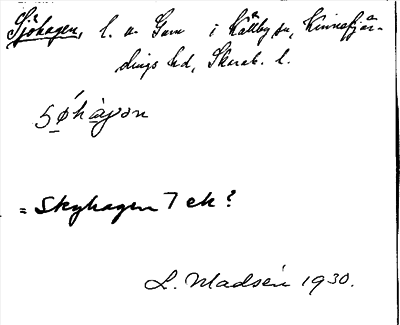 Sjöhagen, l. u. Gum i Källby sn, Kinnefjär-
dings hd, Skarab. l.
sø̀hàgon
= Skyhagen 7 ek?
L. Madsén 1930.